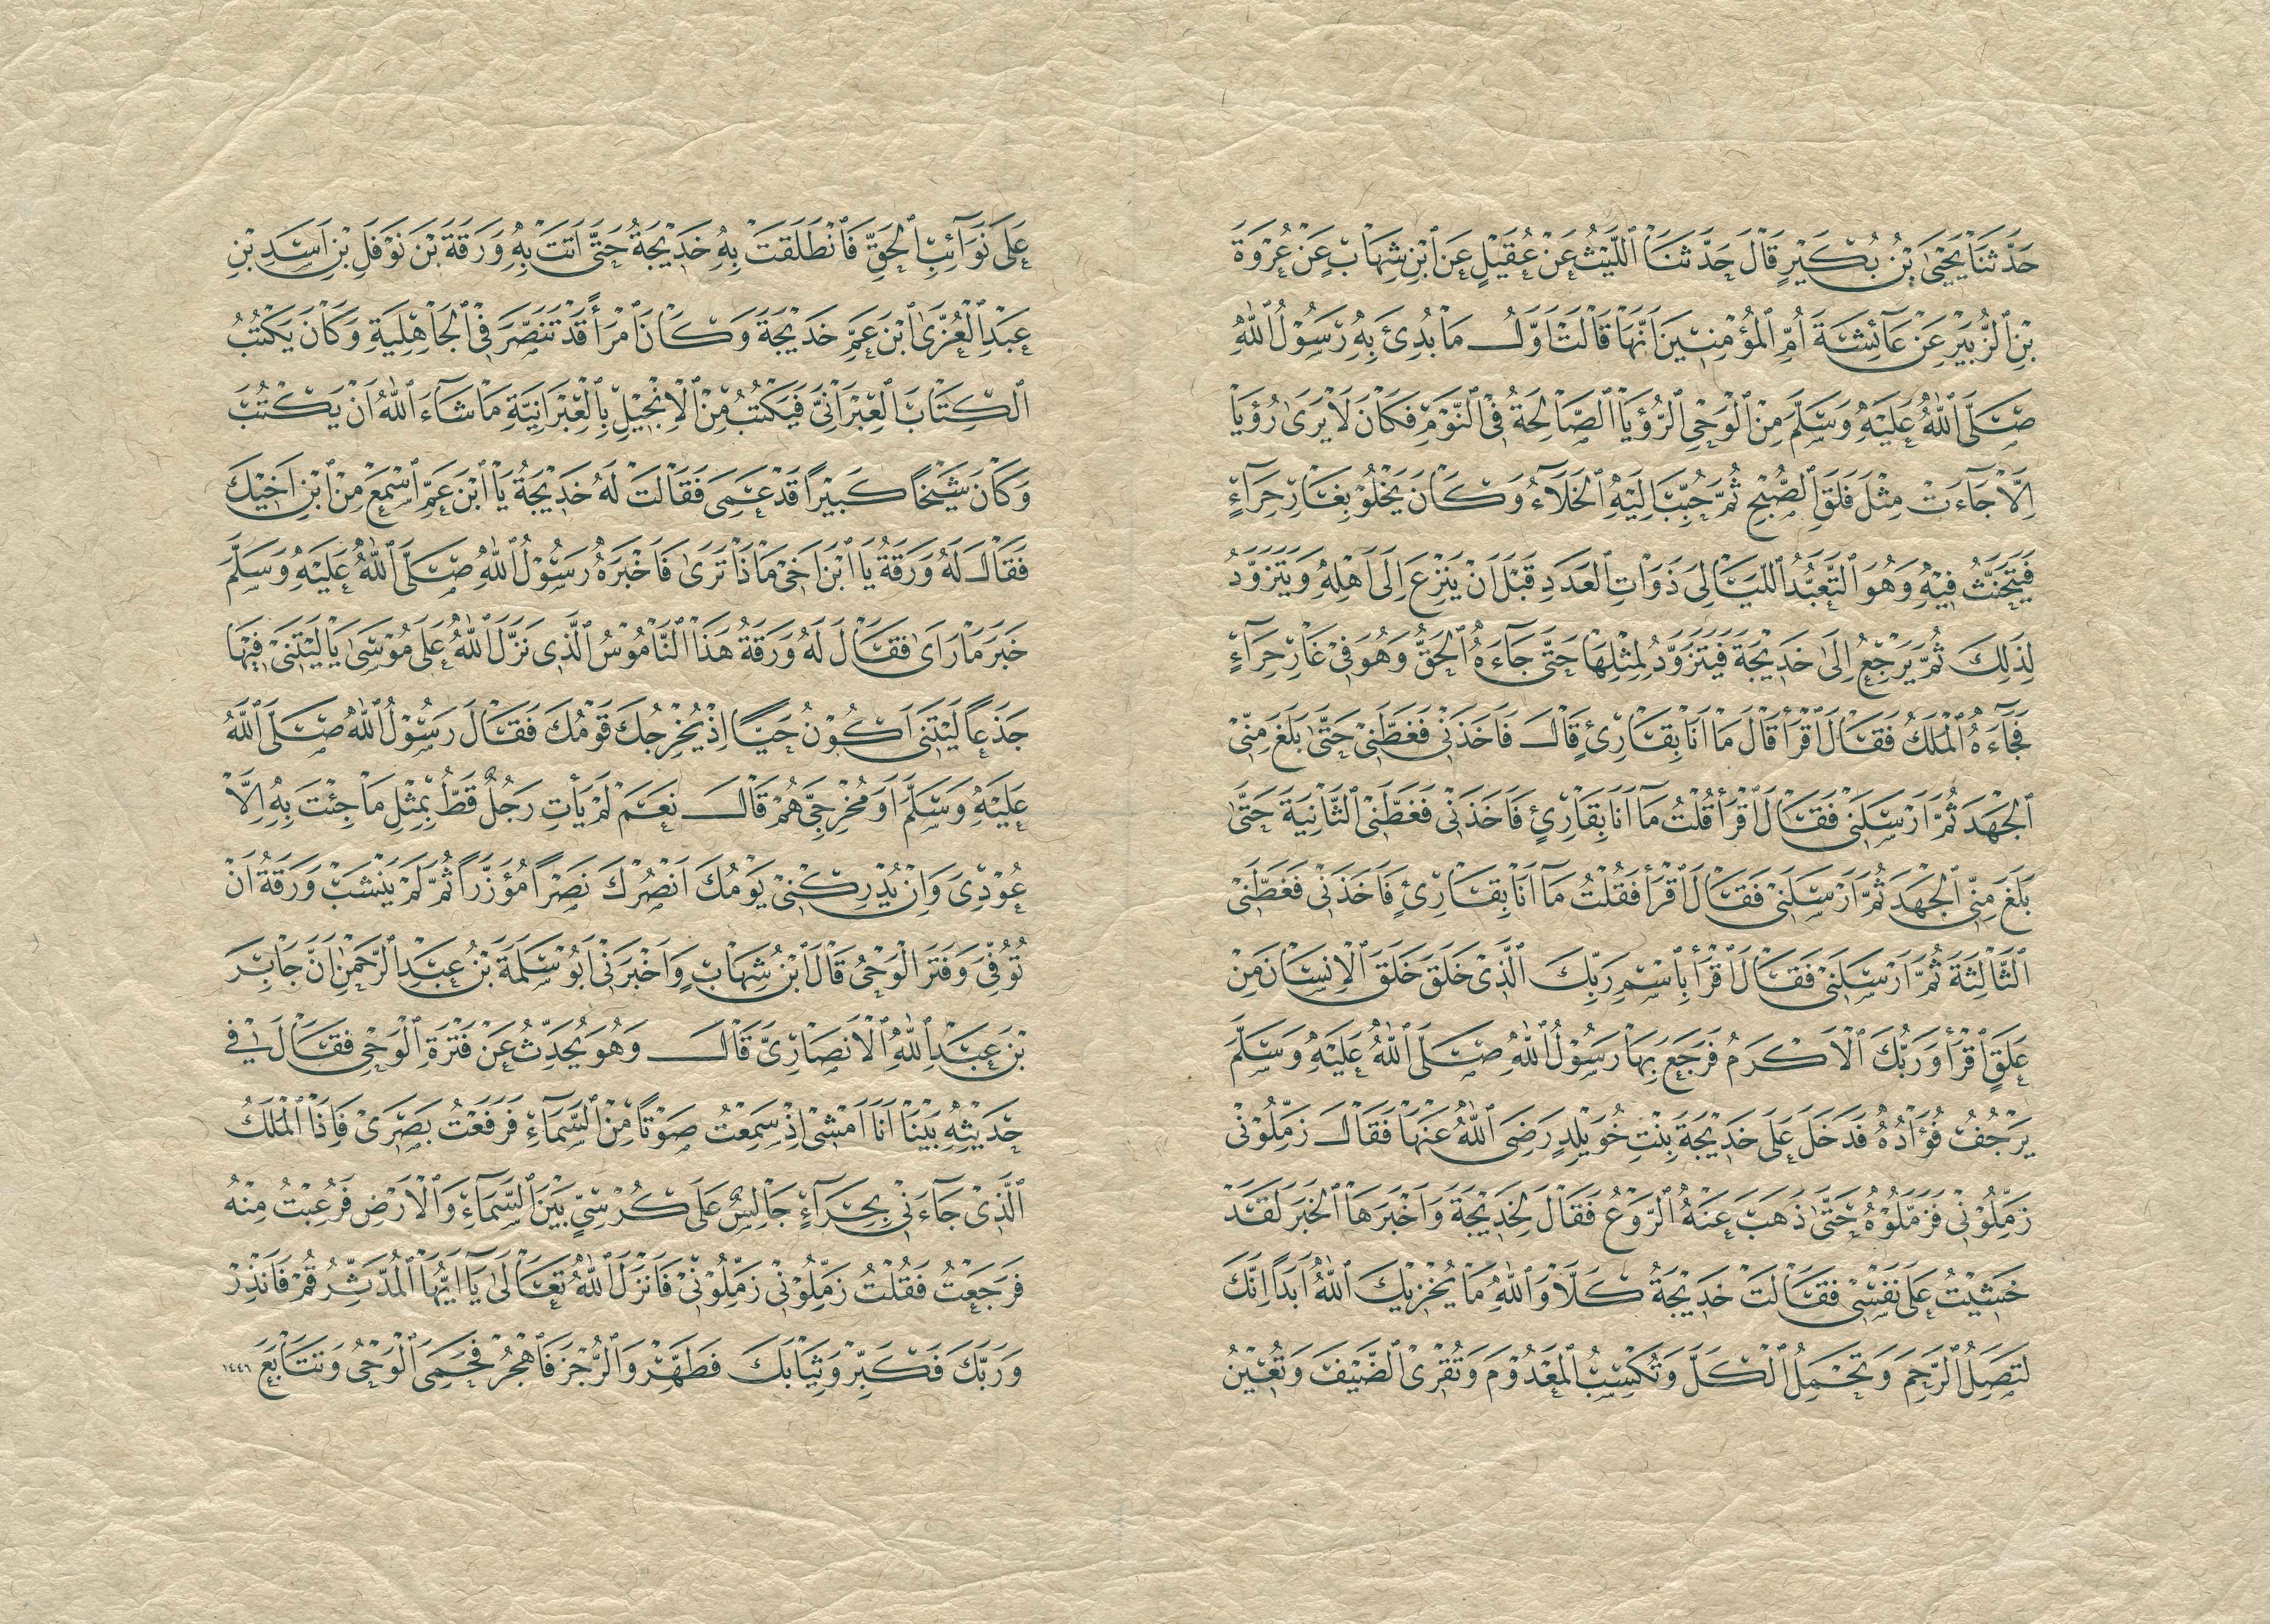 حَدَّثَنَا يَحْيَىٰ بْنُ بُكَيْرٍ قَالَ حَدَّثَنَا ٱللَّيْثُ عَنْ عُقَيْلٍ عَنِ ٱبْنِ شِهَابٍ عَنْ عُرْوَةَ
بْنِ ٱلزُّبَيْرِ عَنْ عَآئِشَةَ اُمِّ ٱلْمُؤْمِنِيْنَ اَنَّهَا قَالَتْ اَوَّلُ مَا بُدِئَ بِهِ رَسُوْلُ ٱللّٰهِ
صَلَّى ٱللّٰهُ عَلَيْهِ وَسَلَّمَ مِنَ ٱلْوَحْيِ ٱلرُّؤْيَا ٱلصَّالِحَةُ فِى ٱلنَّوْمِ فَكَانَ لَا يَرَىٰ رُؤْيَا
اِلَّا جَآءَتْ مِثْلَ فَلَقِ ٱلصُّبْحِ ثُمَّ حُبِّبَ اِلَيْهِ ٱلْخَلَآءُ وَكَانَ يَخْلُوْ بِغَارِ حِرَآءٍ
فَيَتَحَنَّثُ فِيْهِ وَهُوَ ٱلتَّعَبُّدُ ٱللَّيَالِىَ ذَوَاتِ ٱلْعَدَدِ قَبْلَ اَنْ يَنْزِعَ اِلَى اَهْلِهِ وَيَتَزَوَّدُ
لِذٰلِكَ ثُمَّ يَرْجِعُ اِلَىٰ خَدِيْجَةَ فَيَتَزَوَّدُ لِمِثْلِهَا حَتَّى جَآءَهُ ٱلْحَقُّ وَهُوَ فِىْ غَارِ حِرَآءٍ
فَجَآءَهُ ٱلْمَلَكُ فَقَالَ ٱقْرَأْ قَالَ مَا اَنَا بِقَارِئٍ قَالَ فَاَخَذَنِىْ فَغَطَّنِىْ حَتَّىٰ بَلَغَ مِنِّىْ
ٱلْجَهْدَ ثُمَّ اَرْسَلَنِىْ فَقَالَ ٱقْرَأْ قُلْتُ مَآ اَنَا بِقَارِئٍ فَاَخَذَنِىْ فَغَطَّنِىْ ٱلثَّانِيَةَ حَتَّىٰ
بَلَغَ مِنِّى ٱلْجَهْدَ ثُمَّ اَرْسَلَنِىْ فَقَالَ ٱقْرَأْ فَقُلْتُ مَآ اَنَا بِقَارِئٍ فَاَخَذَنِىْ فَغَطَّنِىْ
ٱلثَّالِثَةَ ثُمَّ اَرْسَلَنِىْ فَقَالَ ٱقْرَأْ بِٱسْمِ رَبِّكَ ٱلَّذِىْ خَلَقَ خَلَقَ ٱلْاِنْسَانَ مِنْ
عَلَقٍ ٱقْرَأْ وَرَبُّكَ ٱلْاَكْرَمُ فَرَجَعَ بِهَا رَسُوْلُ ٱللّٰهِ صَلَّى ٱللّٰهُ عَلَيْهِ وَسَلَّمَ
يَرْجُفُ فُؤَادُهُ فَدَخَلَ عَلَى خَدِيْجَةَ بِنْتِ خُوَيْلِدٍ رَضِىَ ٱللّٰهُ عَنْهَا فَقَالَ زَمِّلُوْنِىْ
زَمِّلُوْنِىْ فَزَمَّلُوْهُ حَتَّىٰ ذَهَبَ عَنْهُ ٱلرَّوْعُ فَقَالَ لِخَدِيْجَةَ وَاَخْبَرَهَا ٱلْخَبَرَ لَقَدْ
خَشِيْتُ عَلَى نَفْسِىْ فَقَالَتْ خَدِيْجَةُ كَلَّا وَٱللّٰهِ مَا يُخْزِيْكَ ٱللّٰهُ اَبَدًا اِنَّكَ
لَتَصِلُ ٱلرَّحِمَ وَتَحْمِلُ ٱلْكَلَّ وَتُكْسِبُ ٱلْمَعْدُوْمَ وَتُقْرِىْ ٱلضَّيْفَ وَتُعِيْنُ
عَلَى نَوَآئِبِ ٱلْحَقِّ فَانْطَلَقَتْ بِهِ خَدِيْجَةُ حَتَّى اَتَتْ بِهِ وَرَقَةَ بْنَ نَوْفَلِ بْنِ اَسَدِ بْنِ
عَبْدِ ٱلْعُزَّىٰ ٱبْنَ عَمِّ خَدِيْجَةَ وَكَانَ ٱمْرَأً قَدْ تَنَصَّرَ فِى ٱلْجَاهِلِيَةِ وَكَانَ يَكْتُبُ
ٱلْكِتَابَ ٱلْعِبْرَانِىَّ فَيَكْتُبُ مِنَ ٱلْاِنْجِيْلِ بِٱلْعِبْرَانِيَّةِ مَا شَآءَ ٱللّٰهُ اَنْ يَكْتُبَ
وَكَانَ شَيْخًا كَبِيْرًا قَدْ عَمِىَ فَقَالَتْ لَهُ خَدِيْجَةُ يَا ٱبْنَ عَمِّ ٱسْمَعْ مِنَ ٱبْنِ اَخِيْكَ
فَقَالَ لَهُ وَرَقَةُ يَا ٱبْنَ اَخِىْ مَاذَا تَرَىٰ فَاَخْبَرَهُ رَسُوْلُ ٱللّٰهِ صَلَّى ٱللّٰهُ عَلَيْهِ وَسَلَّمَ
خَبَرَ مَا رَاَىٰ فَقَالَ لَهُ وَرَقَةُ هَذَا ٱلنَّامُوْسُ ٱلَّذِى نَزَّلَ ٱللّٰهُ عَلَى مُوْسَىٰ يَا لَيْتَنِىْ فِيْهَا
جَذَعًا لَيْتَنِى اَكُوْنُ حَيًّا اِذْ يُخْرِجُكَ قَوْمُكَ فَقَالَ رَسُوْلُ ٱللّٰهِ صَلَّى ٱللّٰهُ
عَلَيْهِ وَسَلَّمَ اَوَمُخْرِجِىَّ هُمْ قَالَ نَعَمْ لَمْ يَأْتِ رَجُلٌ قَطُّ بِمِثْلِ مَا جِئْتَ بِهِ اِلَّا
عُوْدِىَ وَاِنْ يُدْرِكْنِىْ يَوْمُكَ اَنْصُرْكَ نَصْرًا مُؤَزَّرًا ثُمَّ لَمْ يَنْشَبْ وَرَقَةُ اَنْ
تُوُفِّىَ وَفَتَرَ ٱلْوَحْىُ قَالَ ٱبْنُ شِهَابٍ وَاَخْبَرَنِىْ اَبُوْ سَلَمَةَ بْنُ عَبْدِ ٱلرَّحْمٰنِ اَنَّ جَابِرَ
بْنَ عَبْدِ ٱللّٰهِ ٱلْاَنْصَارِىَّ قَالَ وَهُوَ يُحَدِّثُ عَنْ فَتْرَةِ ٱلْوَحْىِ فَقَالَ فِىْ
حَدِيْثِهِ بَيْنَا اَنَا اَمْشِىْ اِذْ سَمِعْتُ صَوْتًا مِنَ ٱلسَّمَآءِ فَرَفَعْتُ بَصَرِىْ فَاِذَا ٱلْمَلَكُ
ٱلَّذِىْ جَآءَنِىْ بِحِرَآءٍ جَالِسٌ عَلَى كُرْسِىٍّ بَيْنَ ٱلسَّمَآءِ وَٱلْاَرْضِ فَرُعِبْتُ مِنْهُ
فَرَجَعْتُ فَقُلْتُ زَمِّلُوْنِىْ زَمِّلُوْنِىْ فَاَنْزَلَ ٱللّٰهُ تَعَالَىٰ يَآ اَيُّهَا ٱلْمُدَّثِّرُ قُمْ فَاَنْذِرْ
وَرَبَّكَ فَكَبِّرْ وَثِيَابَكَ فَطَهِّرْ وَٱلرُّجْزَ فَاهْجُرْ فَحَمِىَ ٱلْوَحْىُ وَتَتَابَعَ ١٤٤٦